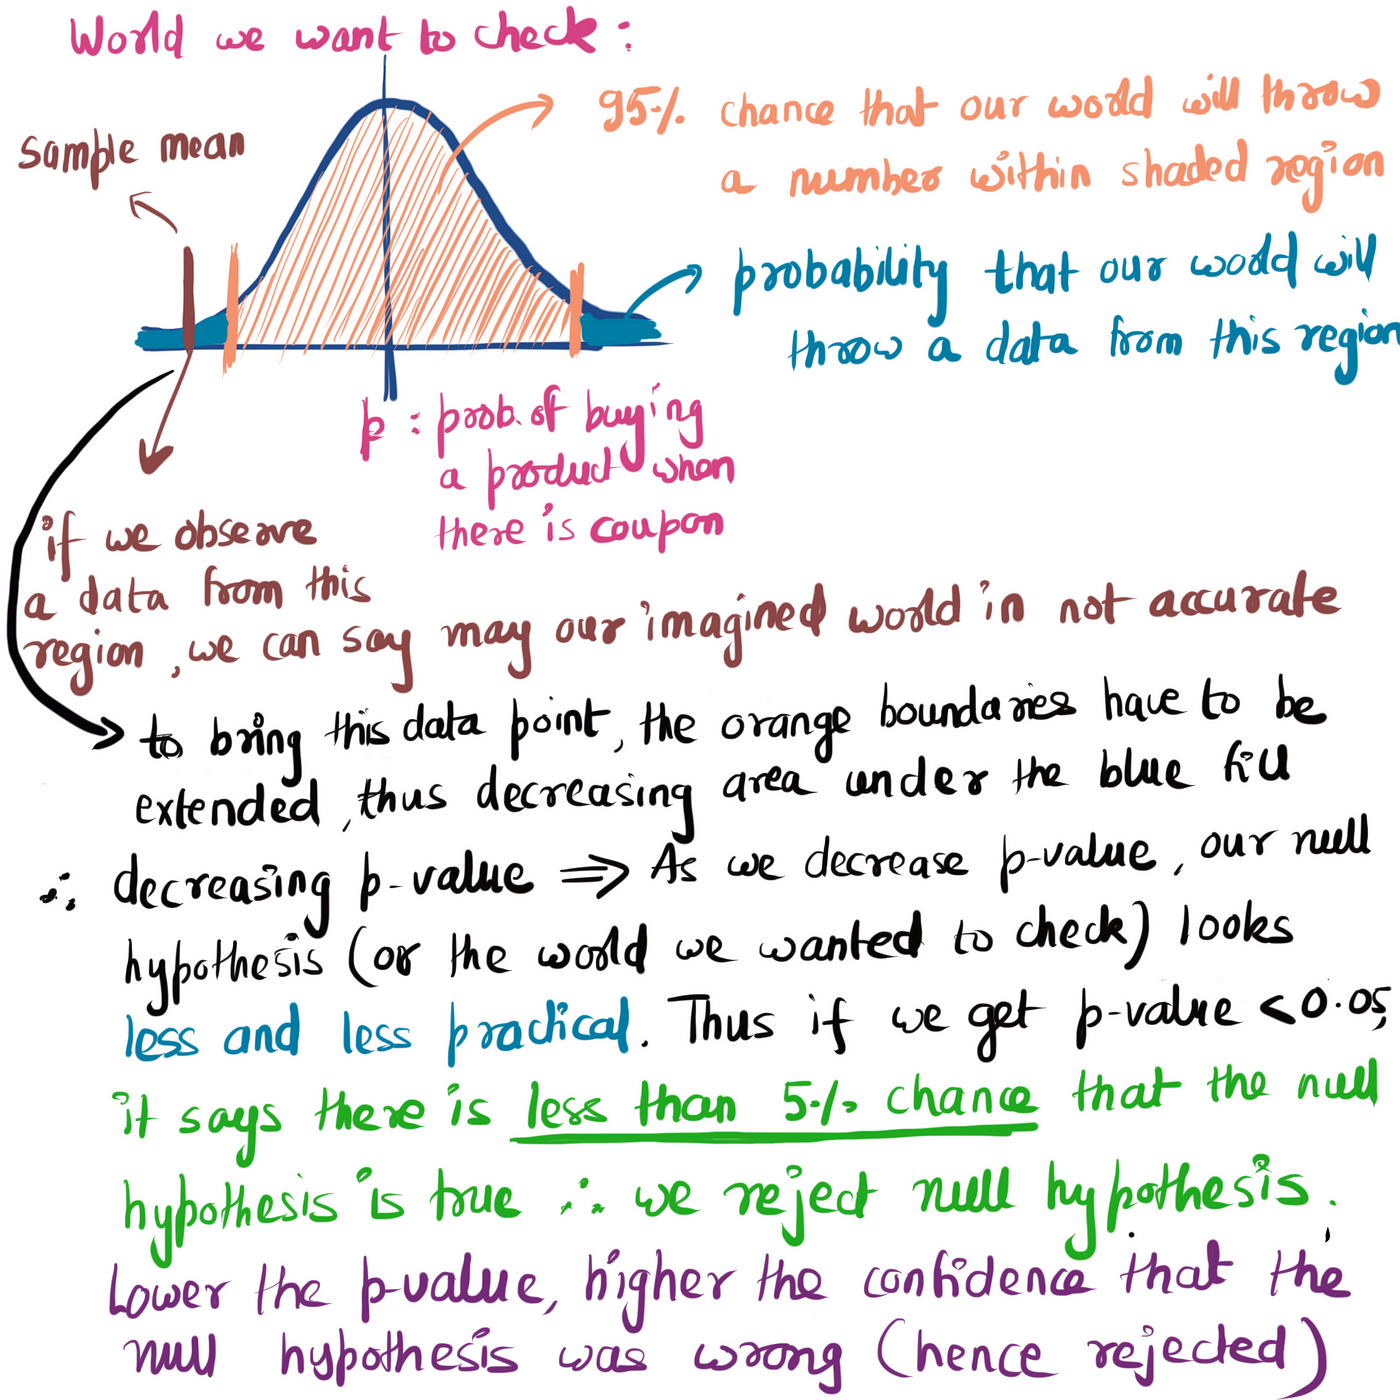 World we want to check :
sample mean
95% chance that our world will throw
a number within shaded region
probability that our world will
throw a data from this region
p : prob. of buying
a product when
there is coupon
if we observe
a data from this
region, we can say may our imagined world in not accurate
to bring this data point, the orange boundaries have to be
extended, thus decreasing area under the blue fill
∴ decreasing p-value ⇒ As we decrease p-value, our null
hypothesis (or the world we wanted to check) looks
less and less practical. Thus if we get p-value < 0.05,
it says there is less than 5% chance that the null
hypothesis is true ∴ we reject null hypothesis.
Lower the p-value, higher the confidence that the
null hypothesis was wrong (hence rejected)